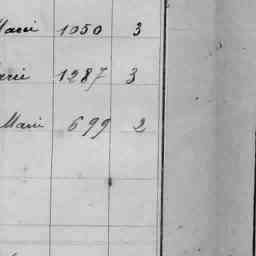 Marii 1050 3
arii 1287 3
Marii 699 2